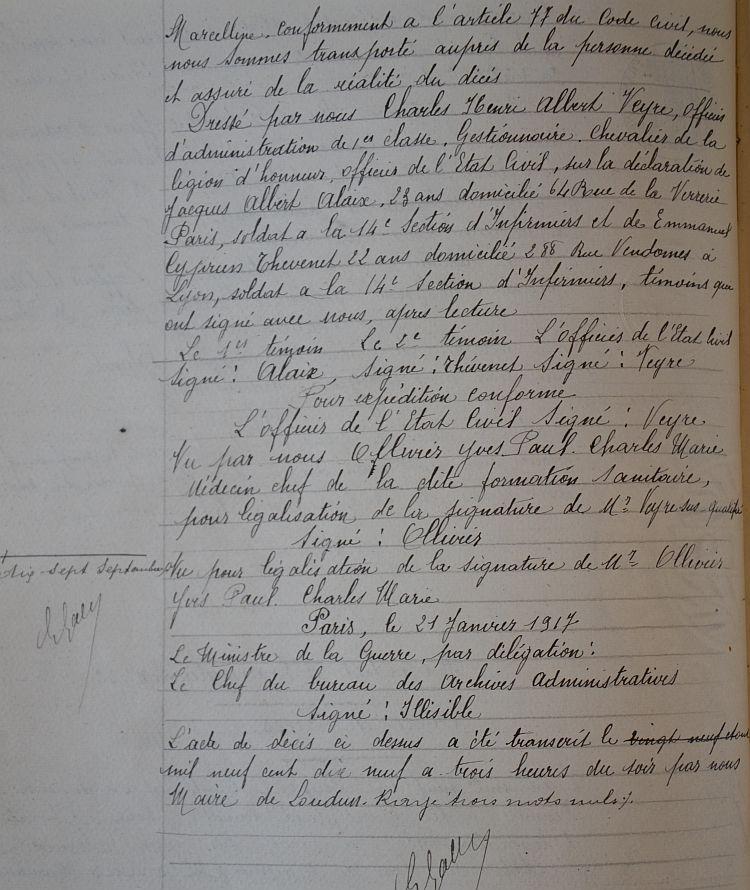 Marcelline. Conformement a l'article 77 du Code Civil, nous
nous sommes transporté aupris de la personne décédée
et assuré de la réalité du décés
Dressé par nous Charles Henri Albert Veyre, officier
d'administration de 1ere classe, Gestionnaire. Chevalier de la
légion d'honneur, officier de l'Etat Civil, sur la déclaration de
Jacques Albert Alaix, 23 ans domicilié 64 Rue de la Verrerie
Paris, soldat a la 14e Section d'Infirmiers et de Emmanuel
Cyprien Thevenet 22 ans domicilié 288 Rue Vendomes à
Lyon, soldat a la 14e Section d'Infirmiers, témoins qui
ont signé avec nous, apres lecture
Le 1er témoin Le 2e témoin L'officier de l'Etat Civil
Signé: Alaix, Signé: Thévenet Signé: Veyre
Pour expédition conforme
L'officier de l'Etat Civil Signé: Veyre
Vu par nous Ollivier Yves Paul. Charles Marie
Médecin chef de la dite formation sanitaire,
pour légalisation de la signature de Mr Veyre sus-qualifié
Signé: Ollivier
dix-sept Septembre
Vu pour légalisation de la signature de Mr Ollivier
Yves Paul. Charles Marie
Paris, le 21 Janvier 1917
Le Ministre de la Guerre, par délégation:
Le Chef du bureau des Archives Administratives
Signé: Illisible
L'acte de décés ci dessus a été transcrit le vingt neuf
mil neuf cent dix neuf a trois heures du soir par nous
Maire de Loudun Rayé trois mots nuls